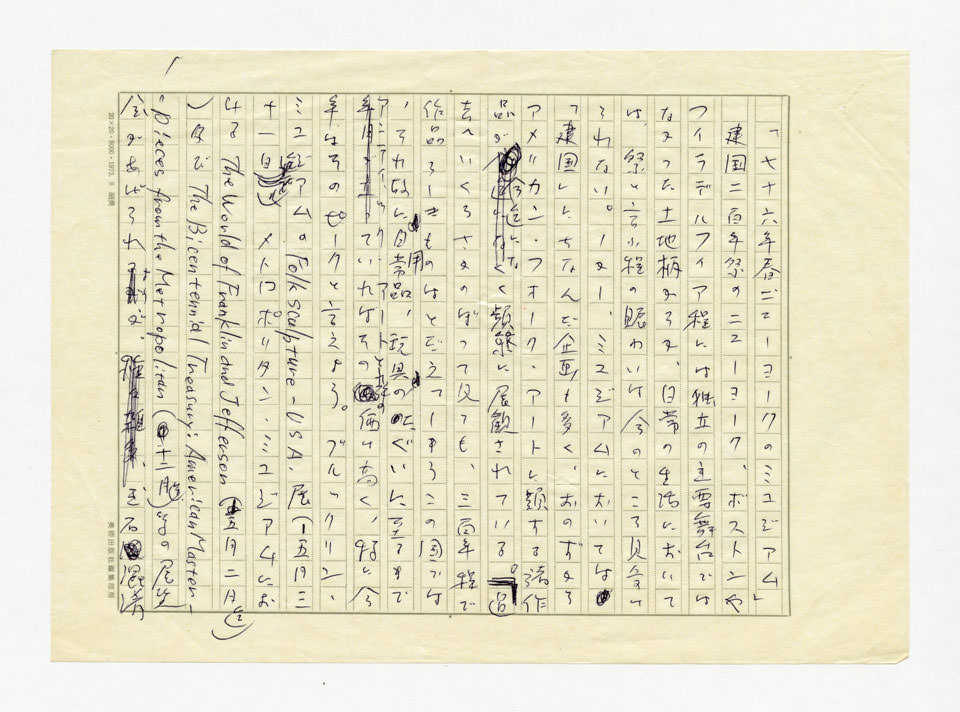 「七十六年春ニューヨークのミュジアム」
建国二百年祭のニューヨーク、ボストンや
フィラデルフィア程には独立の主要舞台では
なかった土地柄からか、日常の生活において
は、祭と言う程の賑わいは今のところ見受け
られない。しかし、ミュジアムにおいては、
「建国」にちなんだ企画も多く、おのずから
アメリカン・フォーク・アートに類する諸作
品が今迄になく頻繁に展観されている。過
去へいくらさかのぼって見ても、三百年程で
作品らしきものはとだえてしまうこの国では
、それ故に日常用品、玩具のたぐいに至るまで
アンティック・アートと
ていればその価は高く、特に今
年はそのピークと言えよう。ブルックリン、
ミュジアムの Folk Sculpture-USA. 展(一五月三
十一日迄)メトロポリタン・ミュジアムにお
ける The World of Franklin and Jefferson (五月二日迄
) 及び The Bicentennial Treasury: American Master-
-pieces from the Metropolitan (十二月迄) 等の展覧
会があげられ 玉石混淆
20×20・8000・1973. 8
美術出版社編集部用